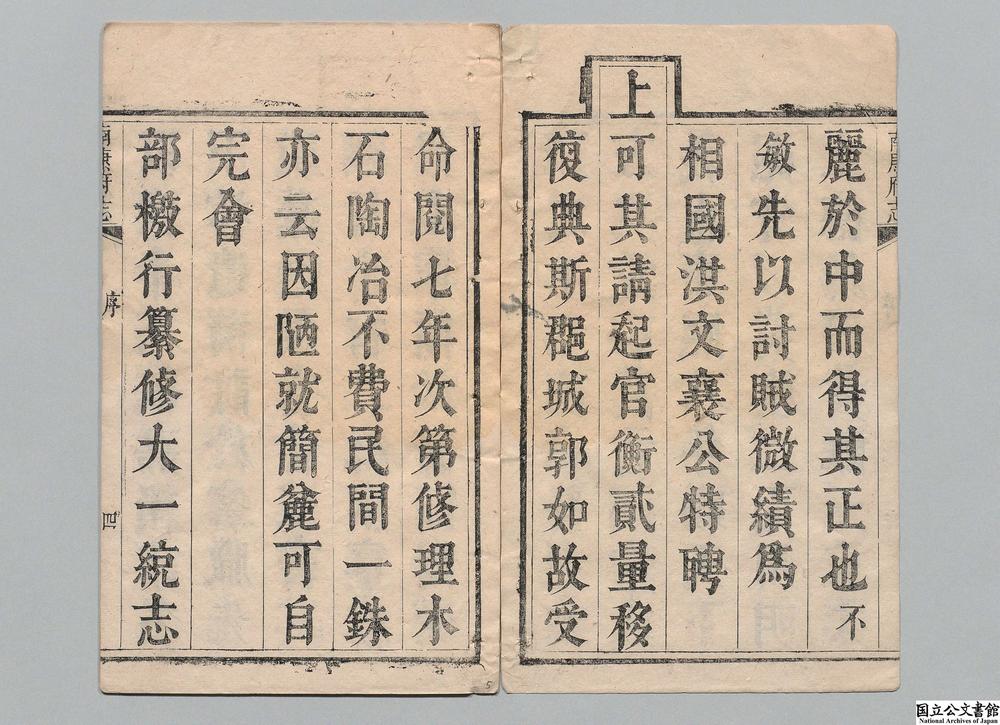 麗於中而得其正也不
敏先以討賊微績爲
相國洪文襄公特聘
上可其請起官衡貳量移
復典斯郡城郭如故受
命閱七年次第修理木
石陶冶不費民間一銖
亦云因陋就簡麄可自
完會
部檄行纂修大一統志
南康府志
序
四
国立公文書館
National Archives of Japan